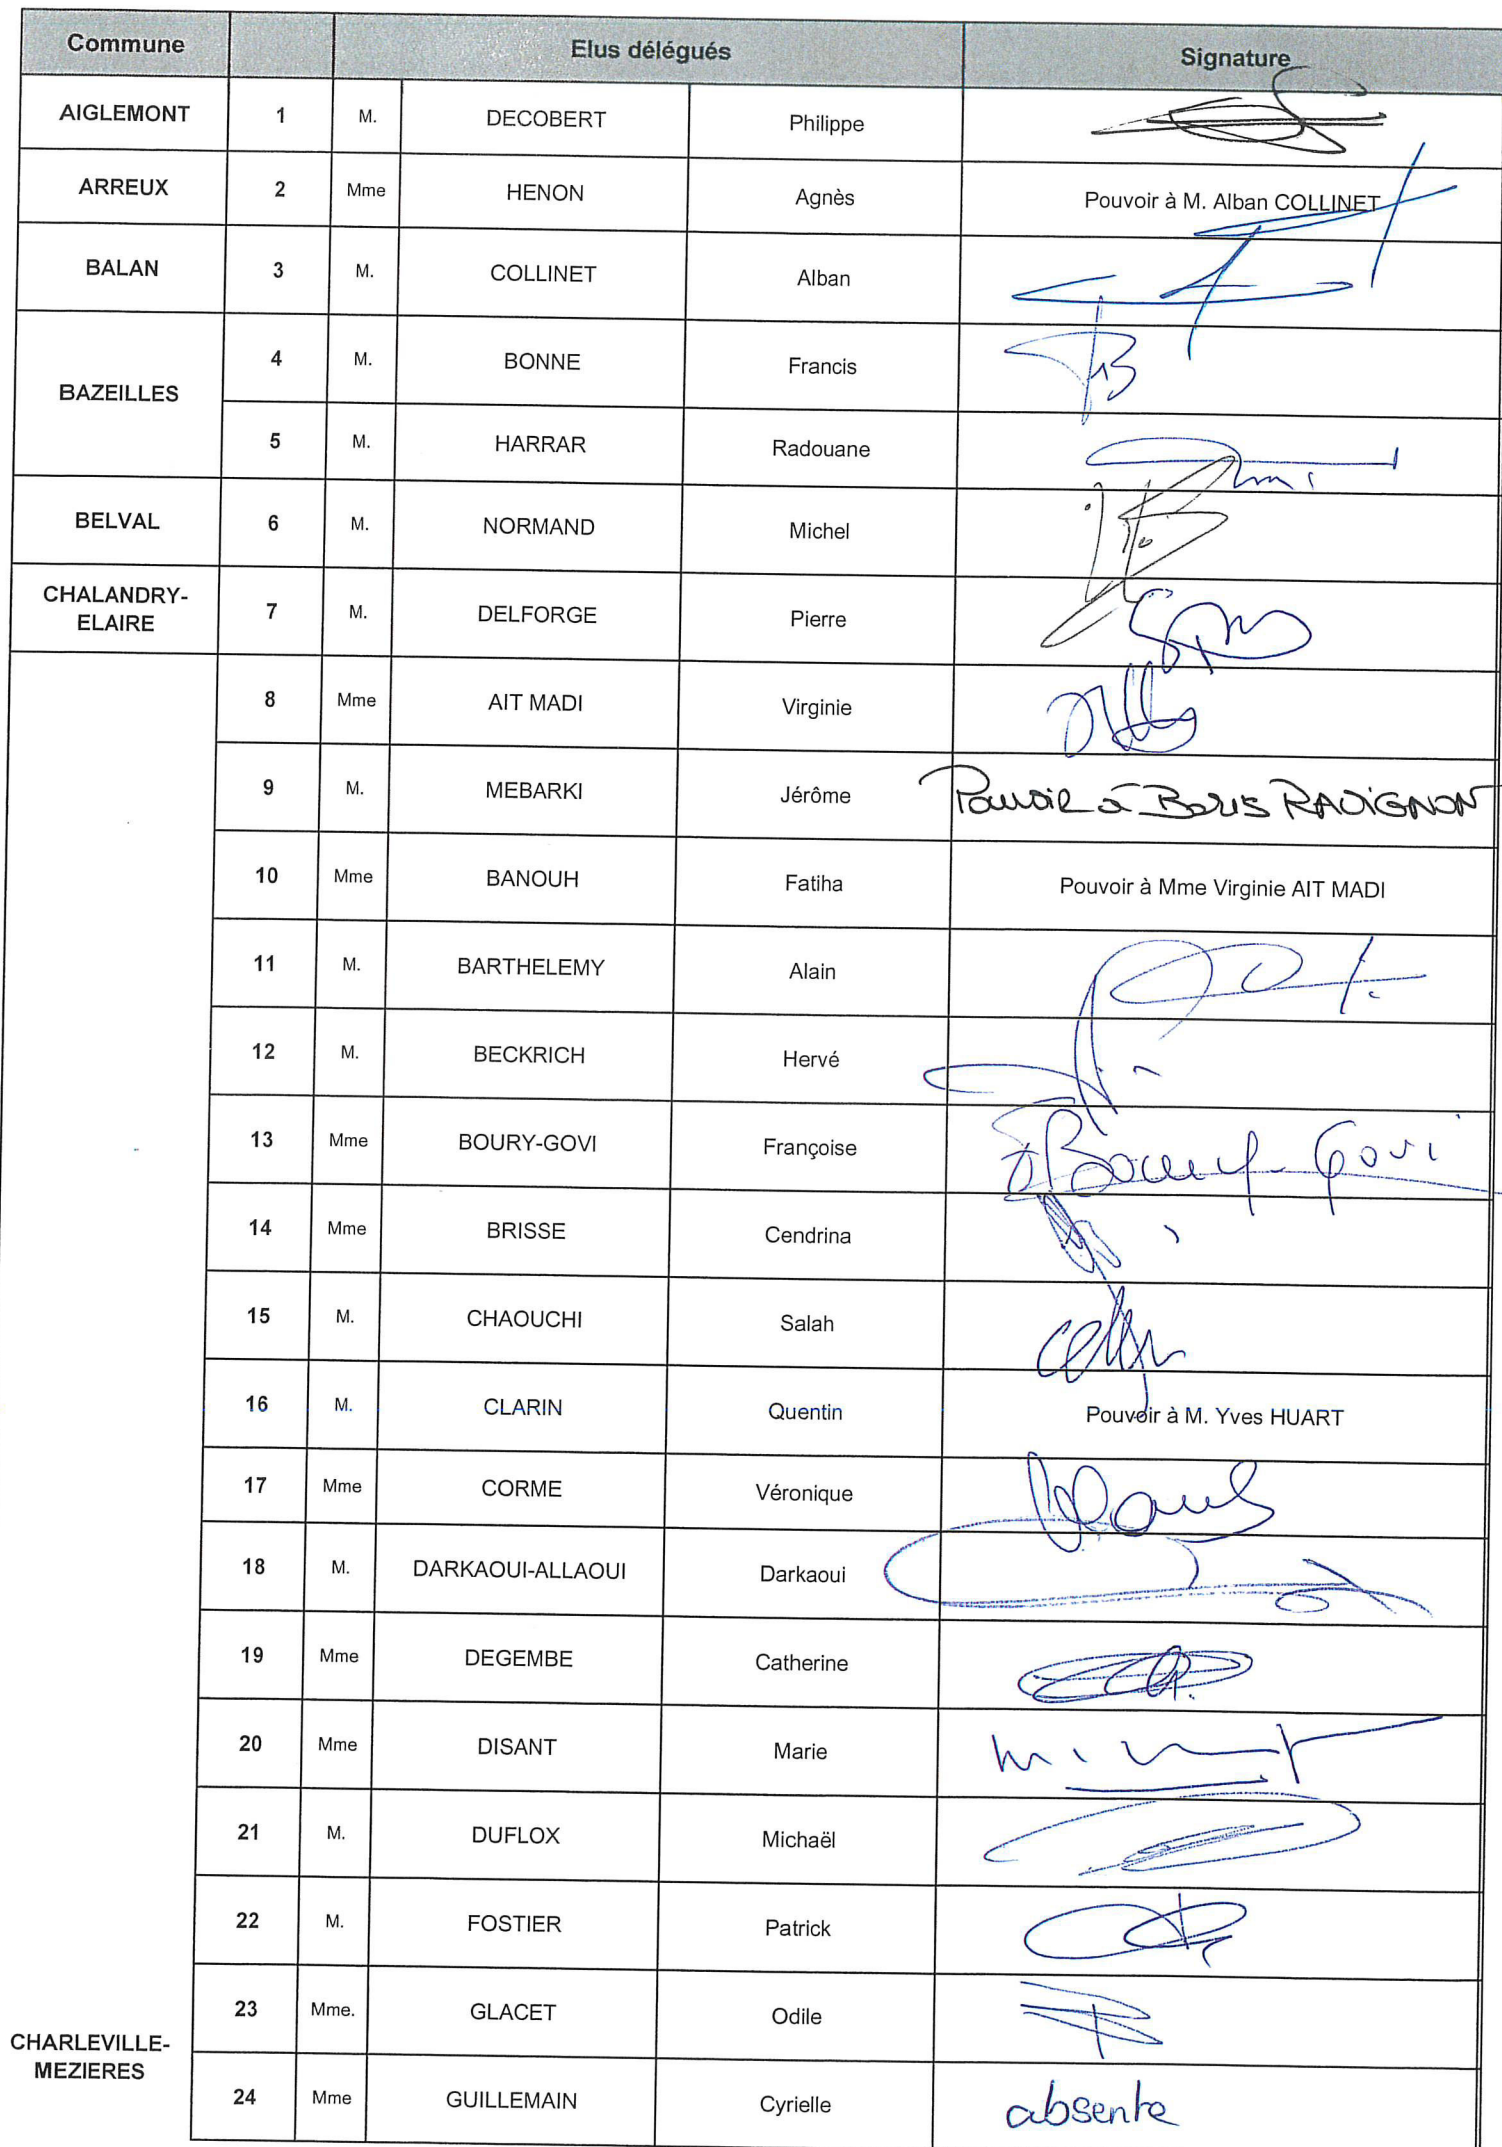 Commune Elus délégués Signature
AIGLEMONT 1 M. DECOBERT Philippe
ARREUX 2 Mme HENON Agnès Pouvoir à M. Alban COLLINET
BALAN 3 M. COLLINET Alban
BAZEILLES
4 M. BONNE Francis
5 M. HARRAR Radouane
BELVAL 6 M. NORMAND Michel
CHALANDRY-
ELAIRE
7 M. DELFORGE Pierre
8 Mme AIT MADI Virginie
9 M. MEBARKI Jérôme Pouvoir à Boris RAVIGNON
10 Mme BANOUH Fatiha Pouvoir à Mme Virginie AIT MADI
11 M. BARTHELEMY Alain
12 M. BECKRICH Hervé
13 Mme BOURY-GOVI Françoise Boury-Govi
14 Mme BRISSE Cendrina
15 M. CHAOUCHI Salah
16 M. CLARIN Quentin Pouvoir à M. Yves HUART
17 Mme CORME Véronique
18 M. DARKAOUI-ALLAOUI Darkaoui
19 Mme DEGEMBE Catherine
20 Mme DISANT Marie
21 M. DUFLOX Michaël
22 M. FOSTIER Patrick
23 Mme. GLACET Odile
CHARLEVILLE-
MEZIERES
24 Mme GUILLEMAIN Cyrielle absente